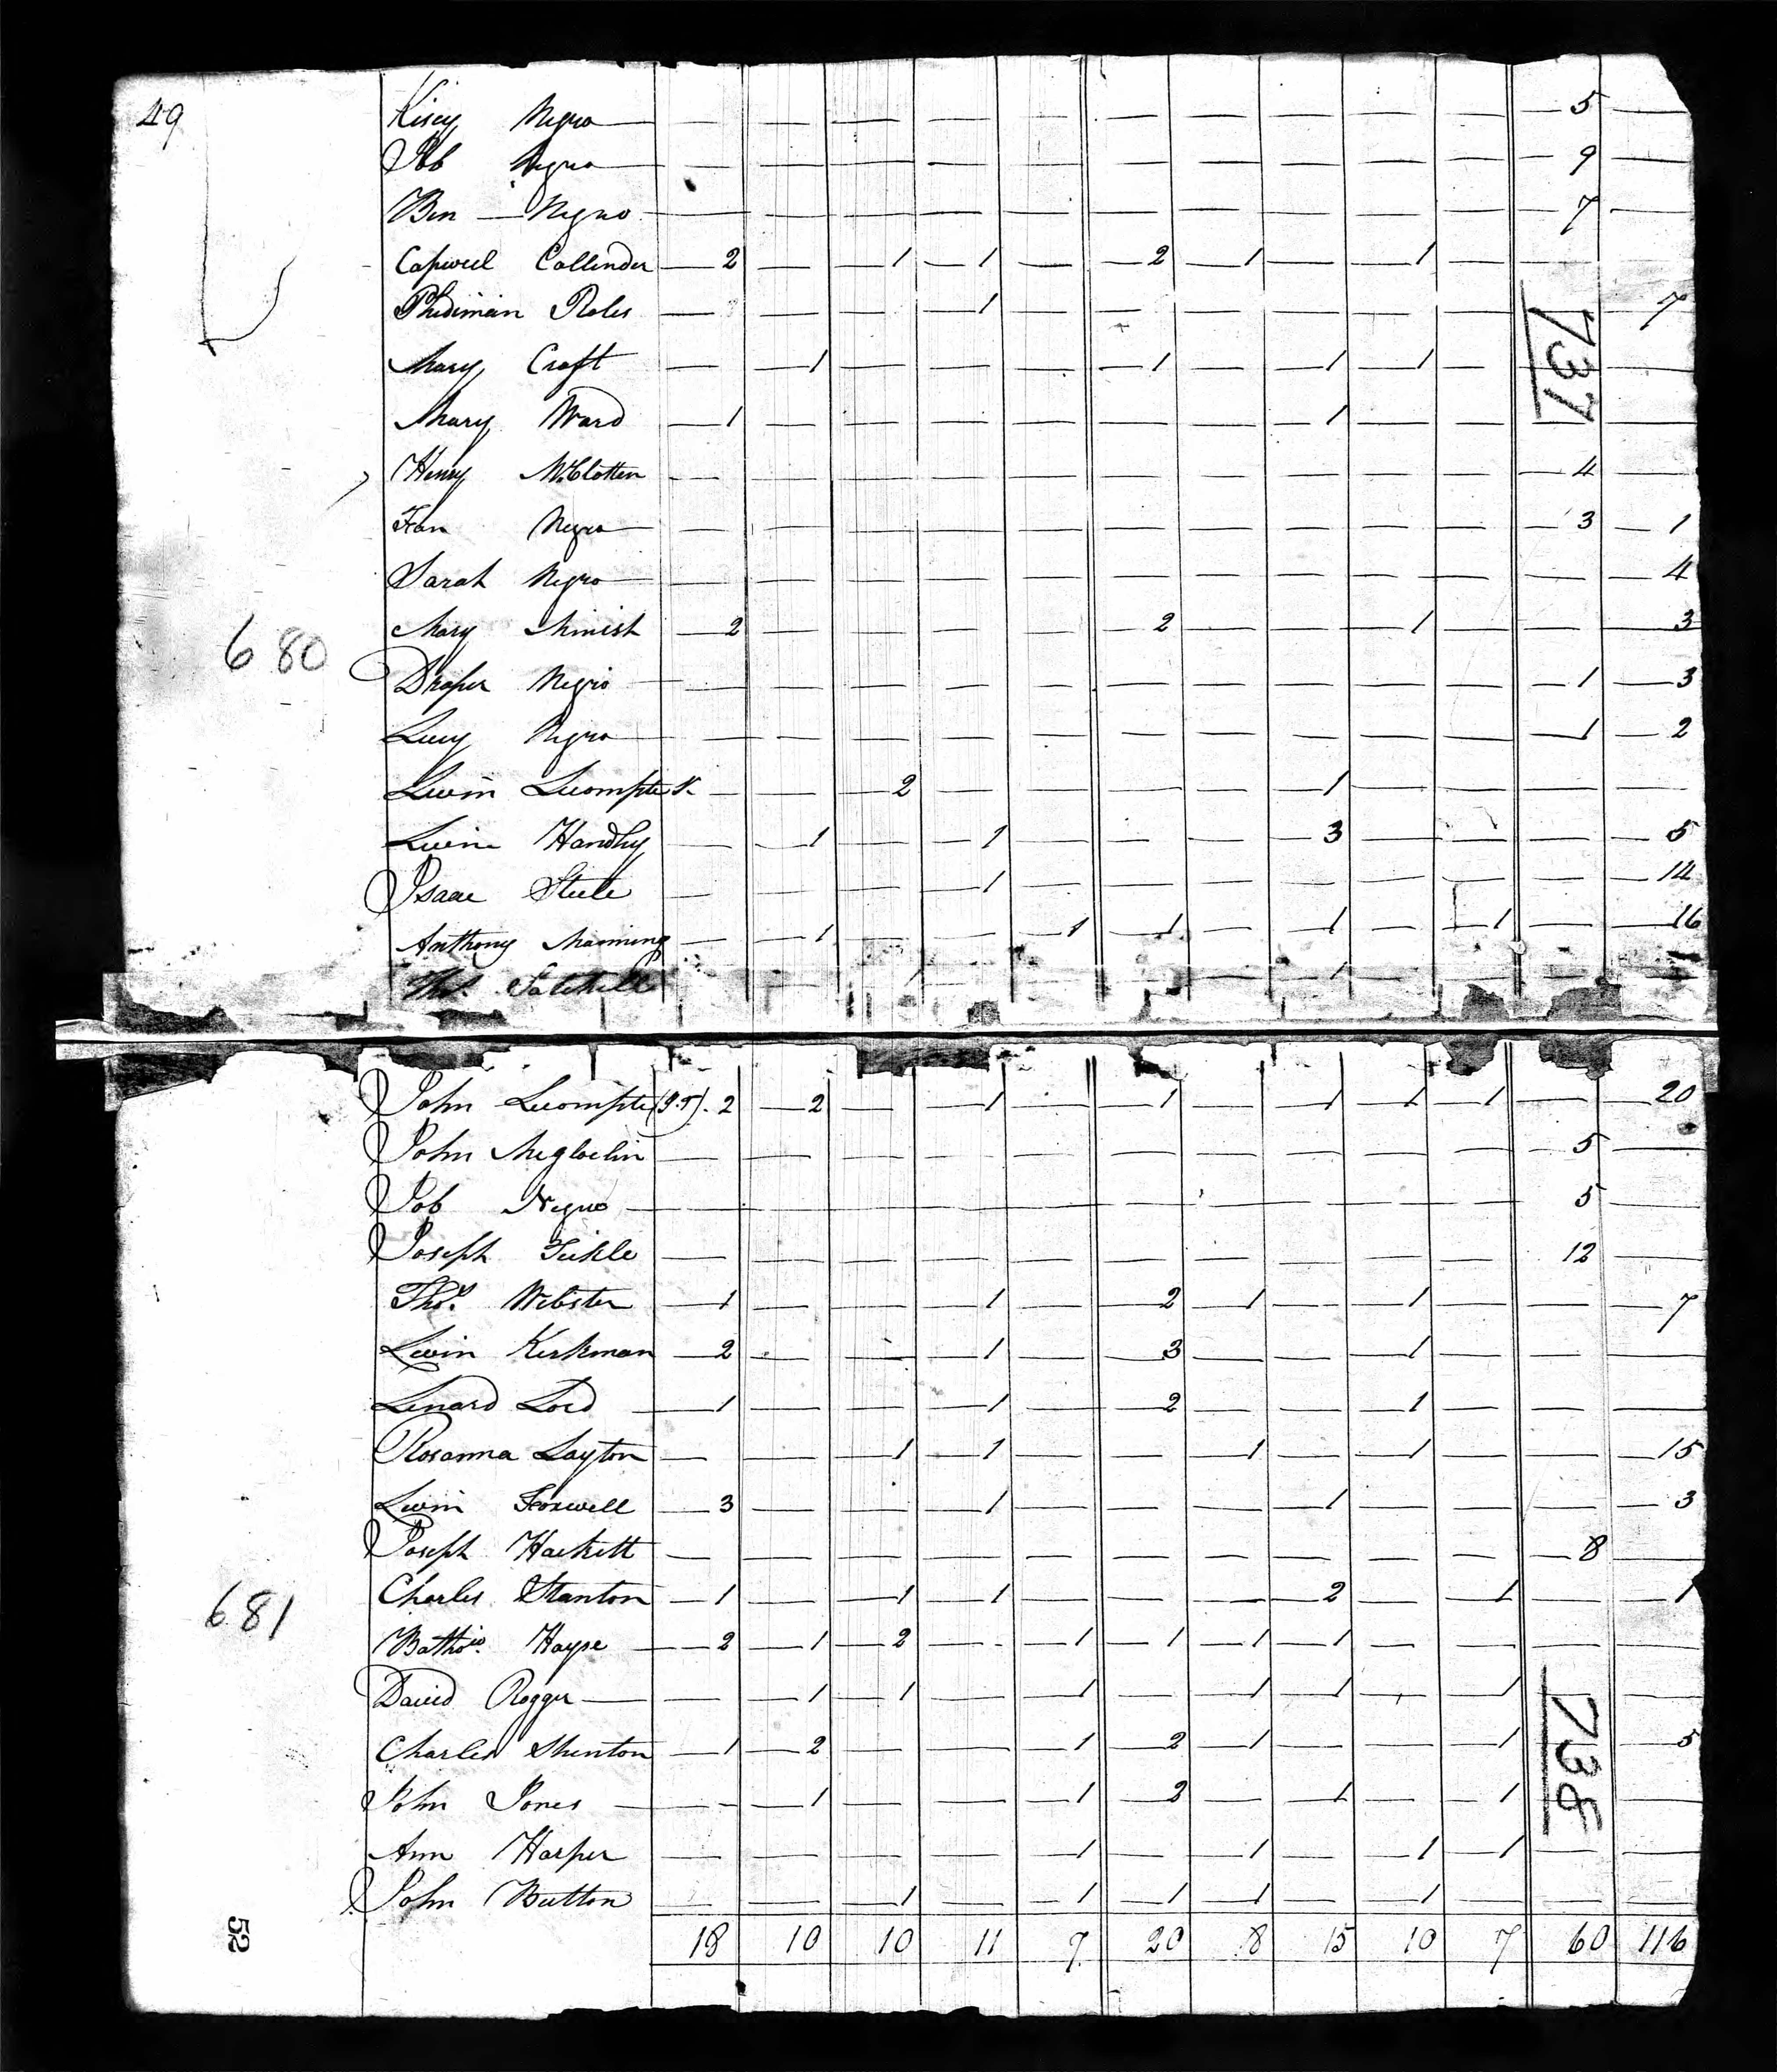 49
Kisey Negro — — — — — — — — — — 5 —
Job Negro — — — — — — — — — — 9 —
Ben — Negro — — — — — — — — — — 7 —
Capwell Callender — 2 — — 1 — 1 — — 2 — 1 — — 1 — — —
Phediman Roles — — — — 1 — — — — — — — 7
Mary Craft — — 1 — — — — 1 — — 1 — 1 — — —
Mary Ward — 1 — — — — — — — 1 — — — —
Henry McClotten — — — — — — — — — — — 4 —
Fan Negro — — — — — — — — — — — 3 — 1
Sarah Negro — — — — — — — — — — — — 4
Mary Minish — 2 — — — — — 2 — — — 1 — — — 3
680
Draper Negro — — — — — — — — — — — 1 — 3
Lucy Negro — — — — — — — — — — — 1 — 2
Levin Lecompte — — — 2 — — — — — 1 — — — —
Levin Handly — — 1 — — 1 — — — — 3 — — — — 5
Isaac Steele — — — — 1 — — — — — — — — 14
Anthony Manning — — 1 — — — 1 — 1 — — 1 — — 1 — — 16
Thos. Satchell — 1 — 1
737
John Lecompte (J.T). 2 — 2 — — 1 — — 1 — — 1 — 1 — 1 — — 20
John — — — — — — — — — — — 5 —
Job Negro — — — — — — — — — — — 5 —
Joseph — — — — — — — — — — — 12 —
Thos. Webster — 1 — — — 1 — — 2 — 1 — — 1 — — — 7
Levin Kirkman — 2 — — — 1 — — 3 — — — 1 — — —
Lenard Lord — 1 — — — 1 — — 2 — — — 1 — — —
Rosanna Layton — — — 1 — 1 — — — 1 — — 1 — — — 15
Levin Foxwell — 3 — — — 1 — — — — 1 — — — — 3
Joseph Hackett — — — — — — — — — — — 8 —
Charles Stanton — 1 — — 1 — 1 — — — — 2 — — 1 — — 1
681
Hayse — 2 — 1 — 2 — — — 1 — 1 — 1 — 1 — — — —
David Rogger — — — 1 — 1 — — 1 — — 1 — 1 — — 1 — —
Charles Shenton — 1 — 2 — — — — 1 — 2 — 1 — — — 1 — 5
John Jones — — — 1 — — — 1 — 2 — — 1 — — 1 —
Ann Harper — — — — — — 1 — — 1 — — 1 — 1 —
John Button — — — 1 — — 1 — 1 — 1 — — 1 — — —
738
52
18 10 10 11 7 20 8 15 10 7 60 116